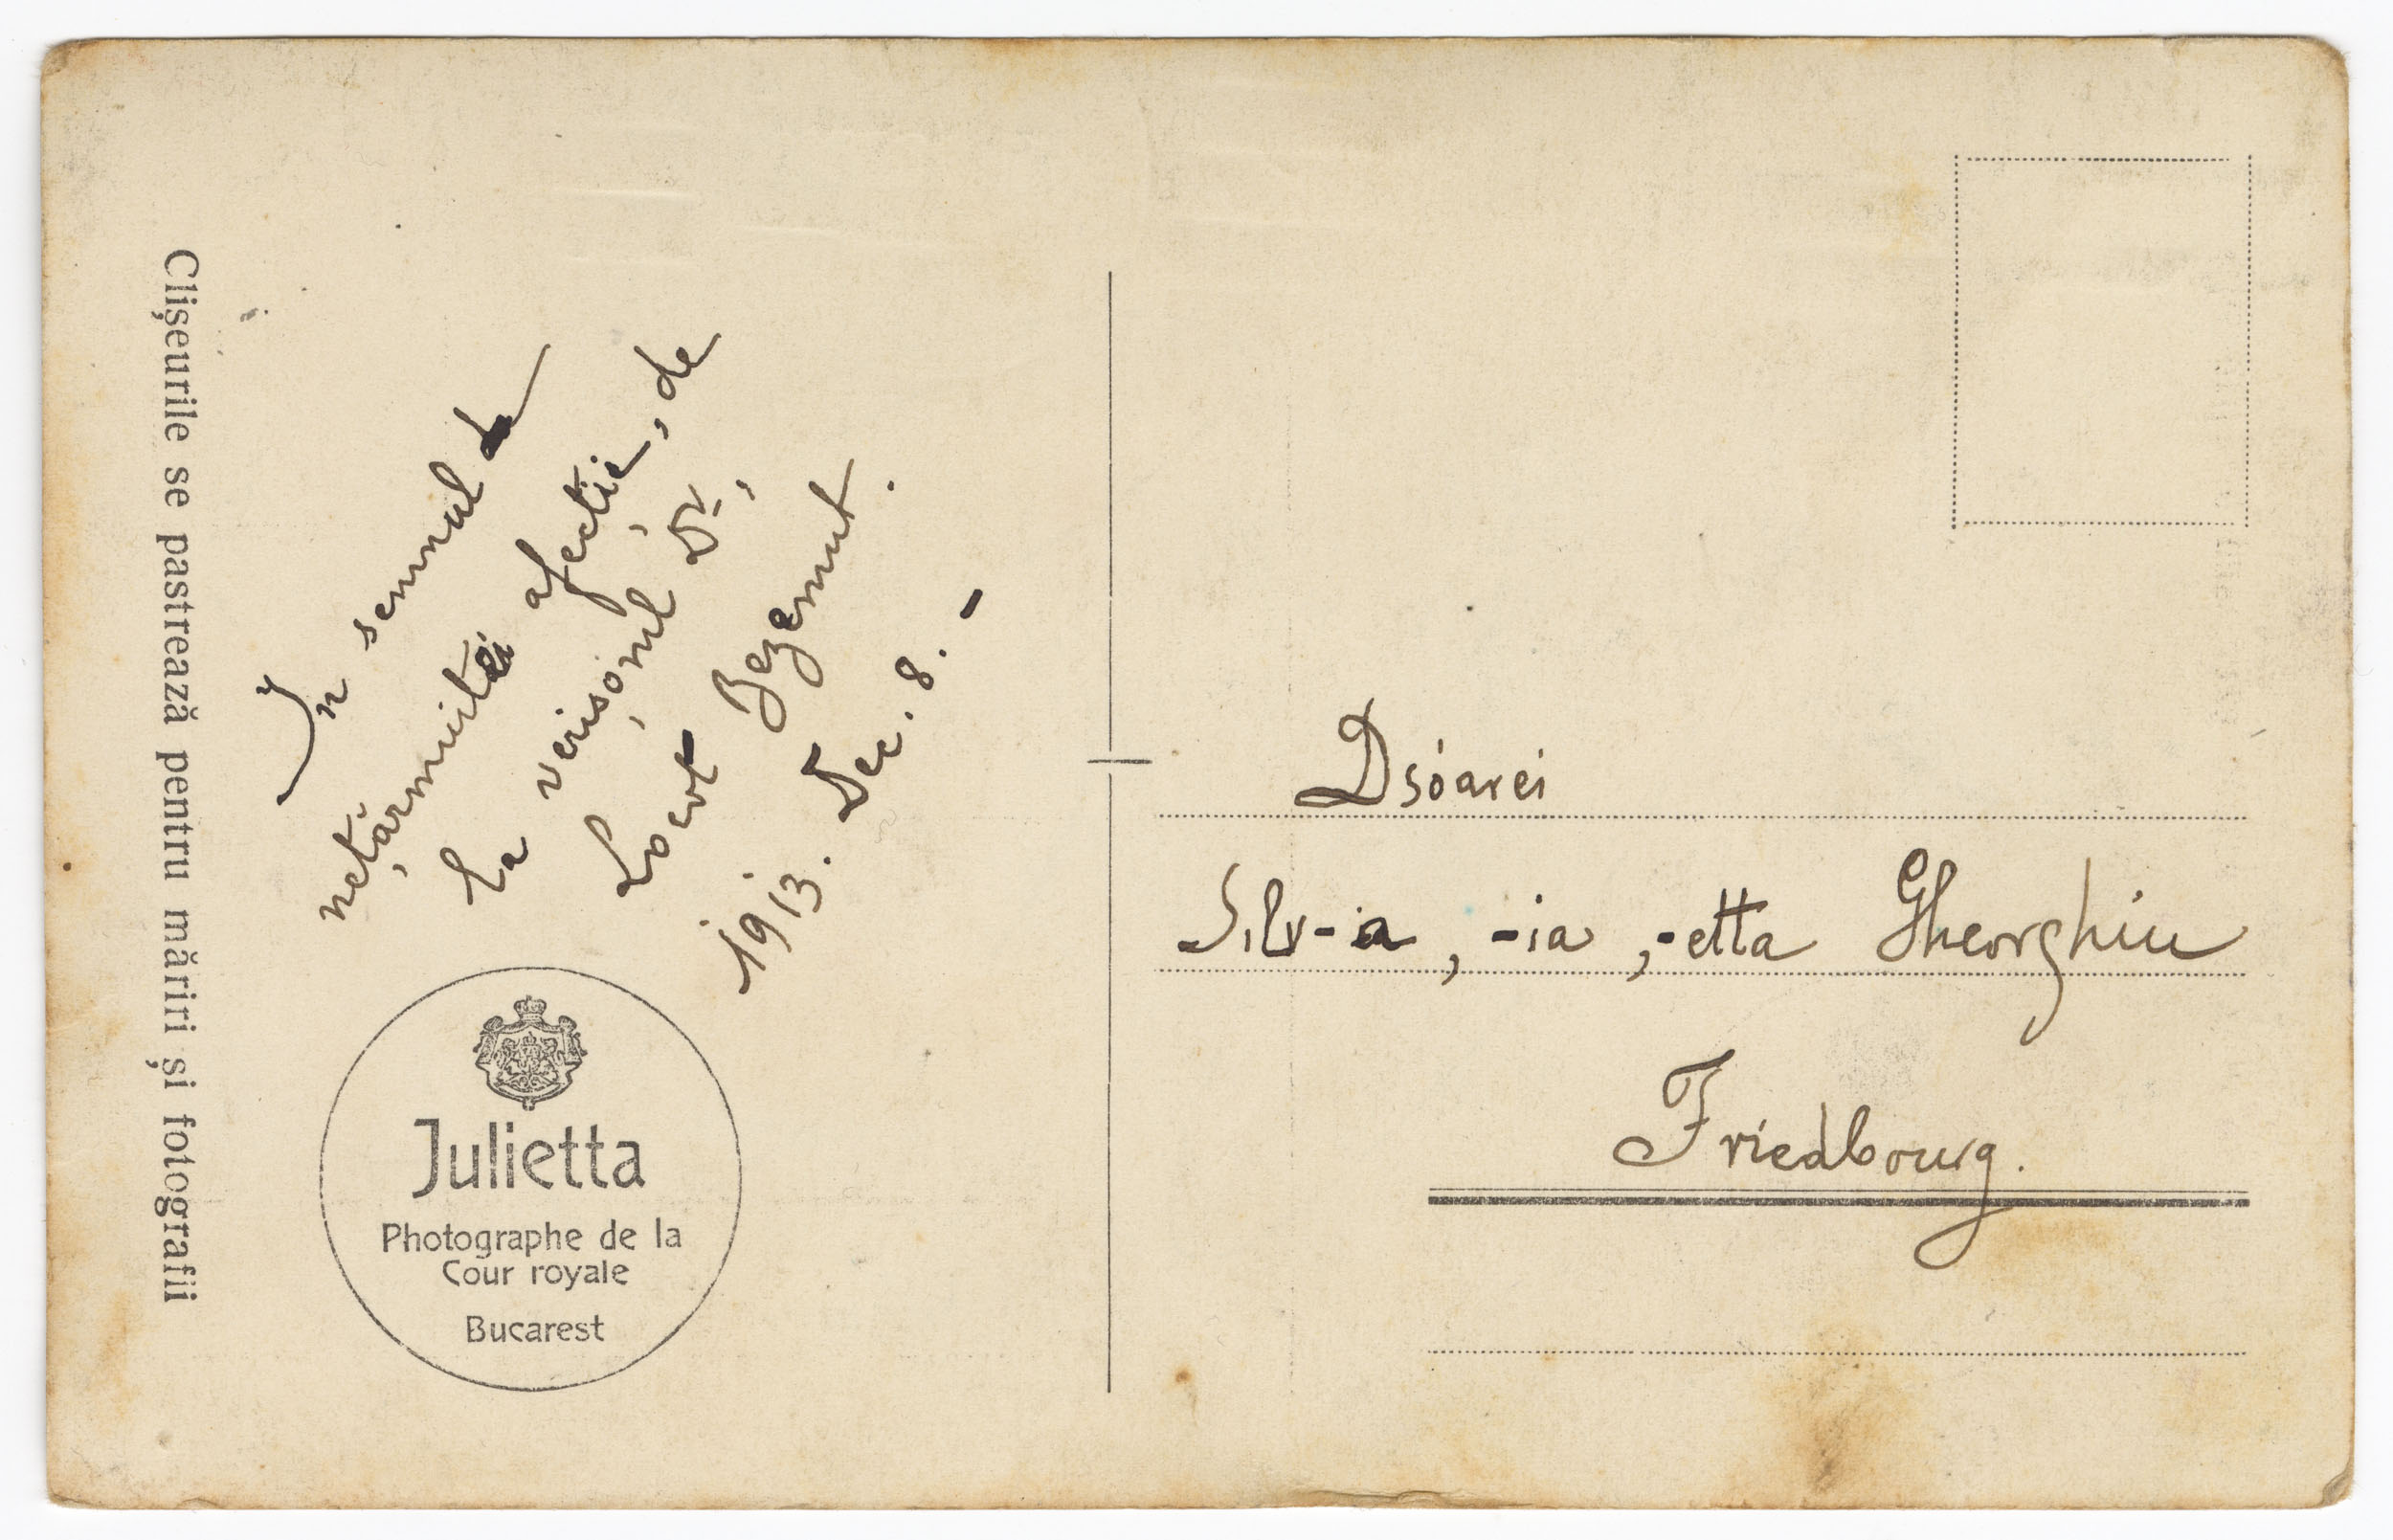 Clişeurile se pastrează pentru măriri şi fotografii
În semnul de
nețărmuitei afecție, de
la verișorul Dr,
Bezemut.
1913. Dec. 8. -
Julietta
Photographe de la
Cour royale
Bucarest
Dsóarei
Silv-a, -ia, -etta Gheorghiu
Friedbourg.